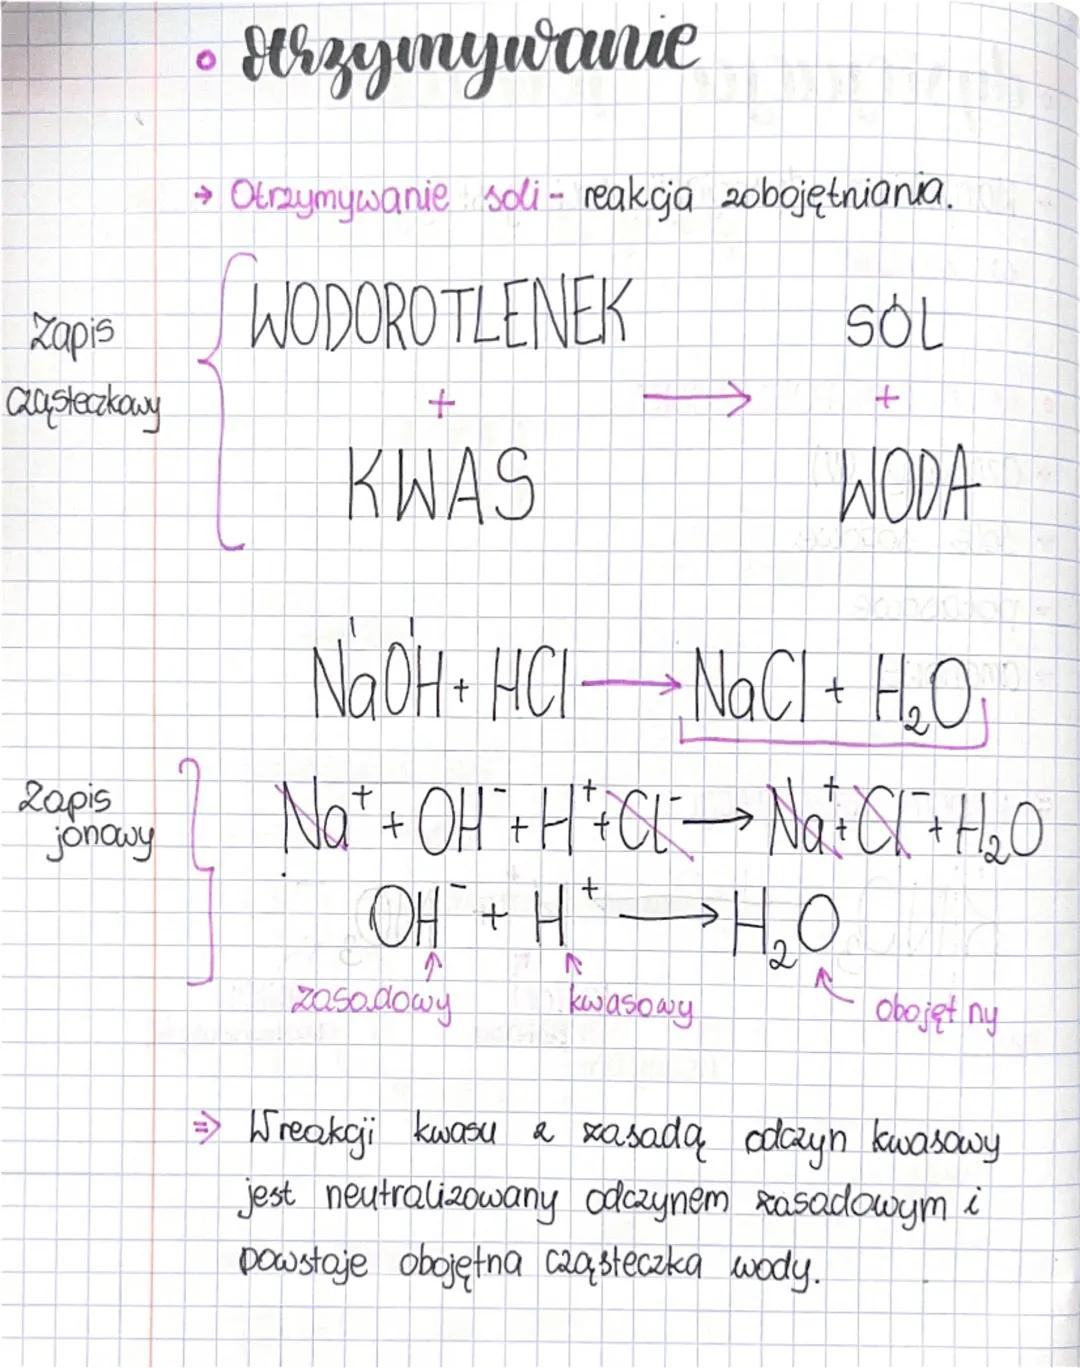 • Otrzymywanie
→ Otrzymywanie soli - reakcja zobojętniania.
Zapis cząsteczkowy
WODOROTLENEK SÓL
+ → +
KWAS WODA
I I
NaOH + HCl → NaCl + H₂O
Zapis jonowy
Na⁺ + OH⁻ + H⁺ + Cl⁻ → Na⁺ + Cl⁻ + H₂O
OH⁻ + H⁺ → H₂O
zasadowy kwasowy obojętny
⇒ W reakcji kwasu z zasadą odczyn kwasowy
jest neutralizowany odczynem zasadowym i
powstaje obojętna cząsteczka wody.